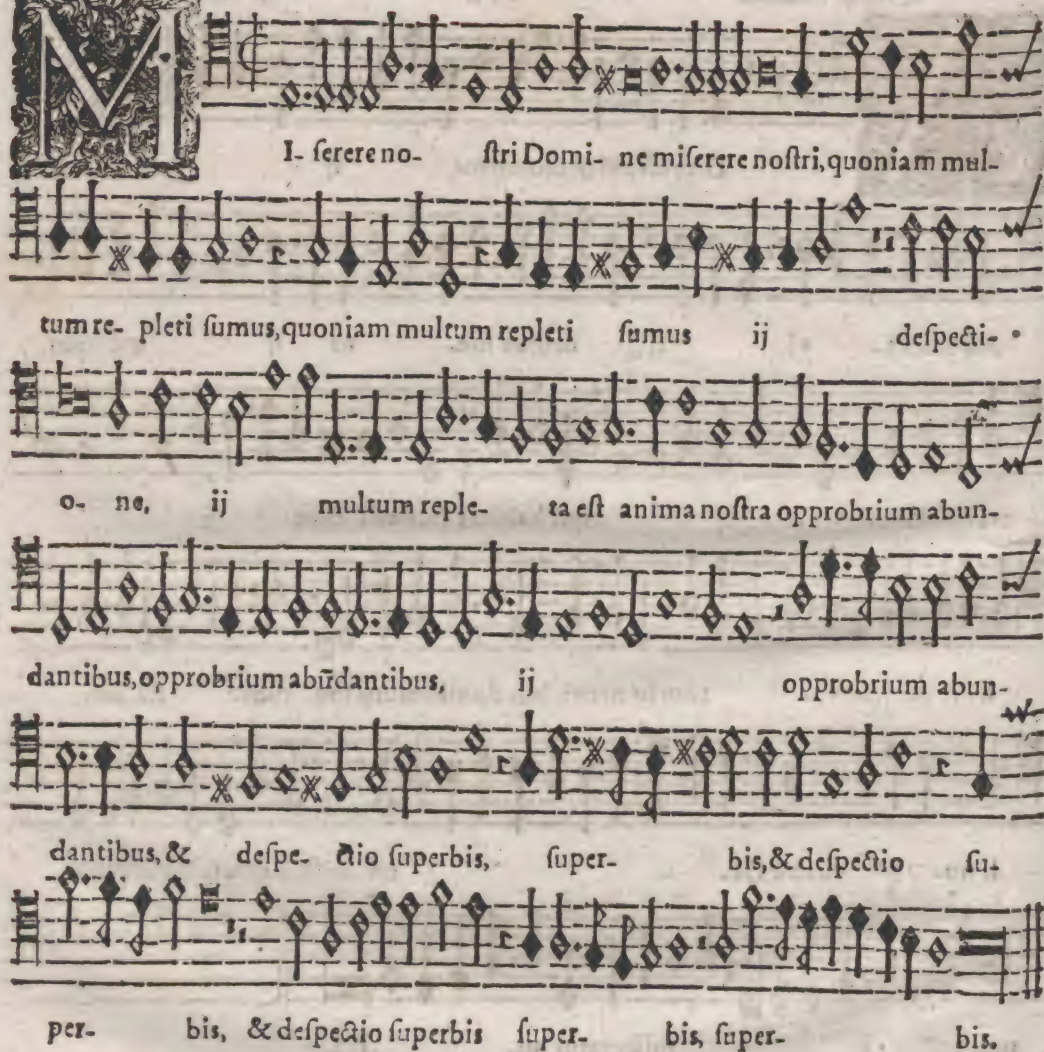 MI- ſerere no- ſtri Domi- ne miſerere noſtri, quoniam mul-
tum re- pleti ſumus, quoniam multum repleti ſumus ij deſpecti-
o- ne, ij multum reple- ta eſt anima noſtra opprobrium abun-
dantibus, opprobrium abūdantibus, ij opprobrium abun-
dantibus, & deſpe- ctio ſuperbis, ſuper- bis, & deſpectio ſu-
per- bis, & deſpectio ſuperbis ſuper- bis, ſuper- bis.